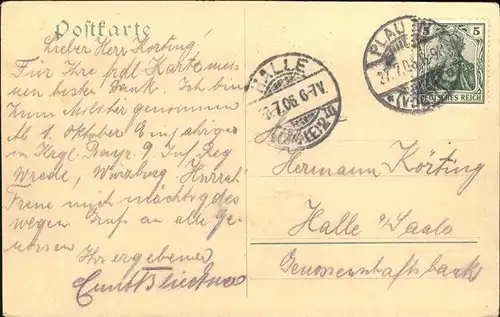 Postkarte
Lieber Herr Körting!
Für Ihre frdl Karte meinen
besten Dank. Ich bin
zum Militär genommen
Ab 1. Oktober Einjähriger
in Kgl. Bayr. 9 Inf. Reg
Wrede, Würzburg. Hurrah
Freue mich mächtig deswegen
Gruß an alle Genossen
Ihr ergebener
HALLE
.7.06. 6-7V.
PLAUEN
27.7.06
5 5
DEUTSCHES REICH
Hermann Körting
Halle a/Saale
Genossenschaftsbank